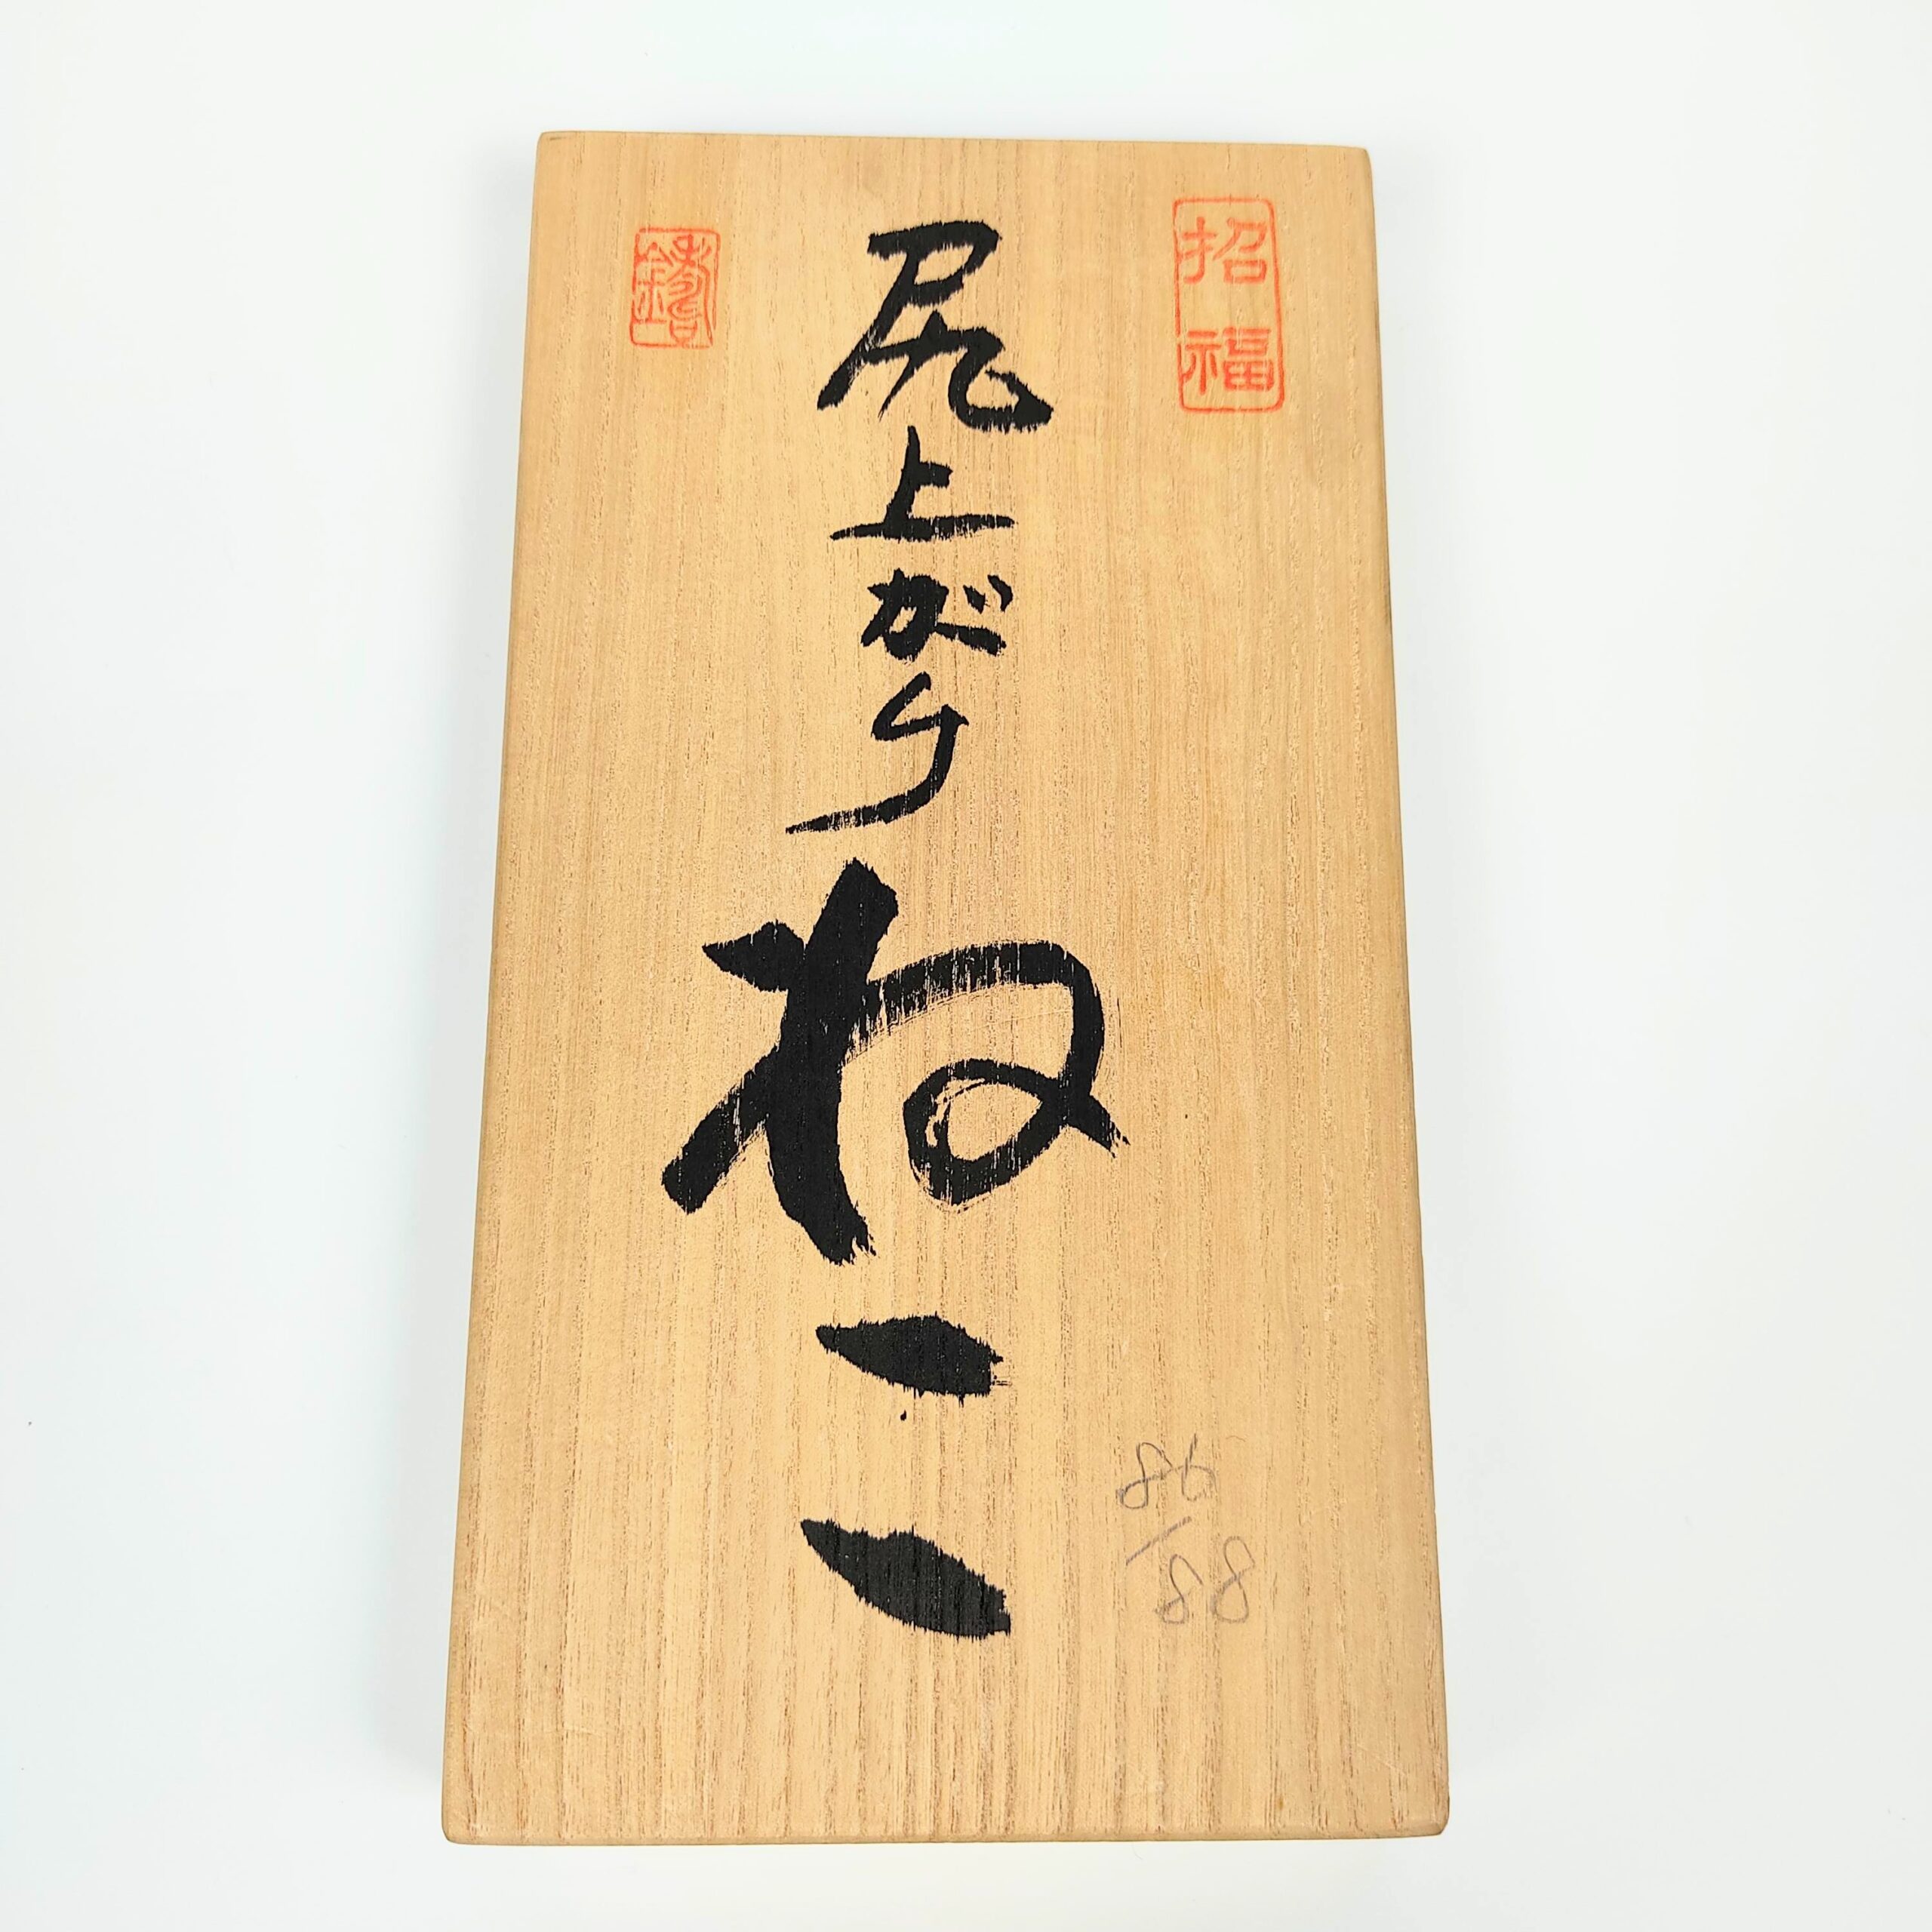 招福
尻上がり
ねこ
86/88